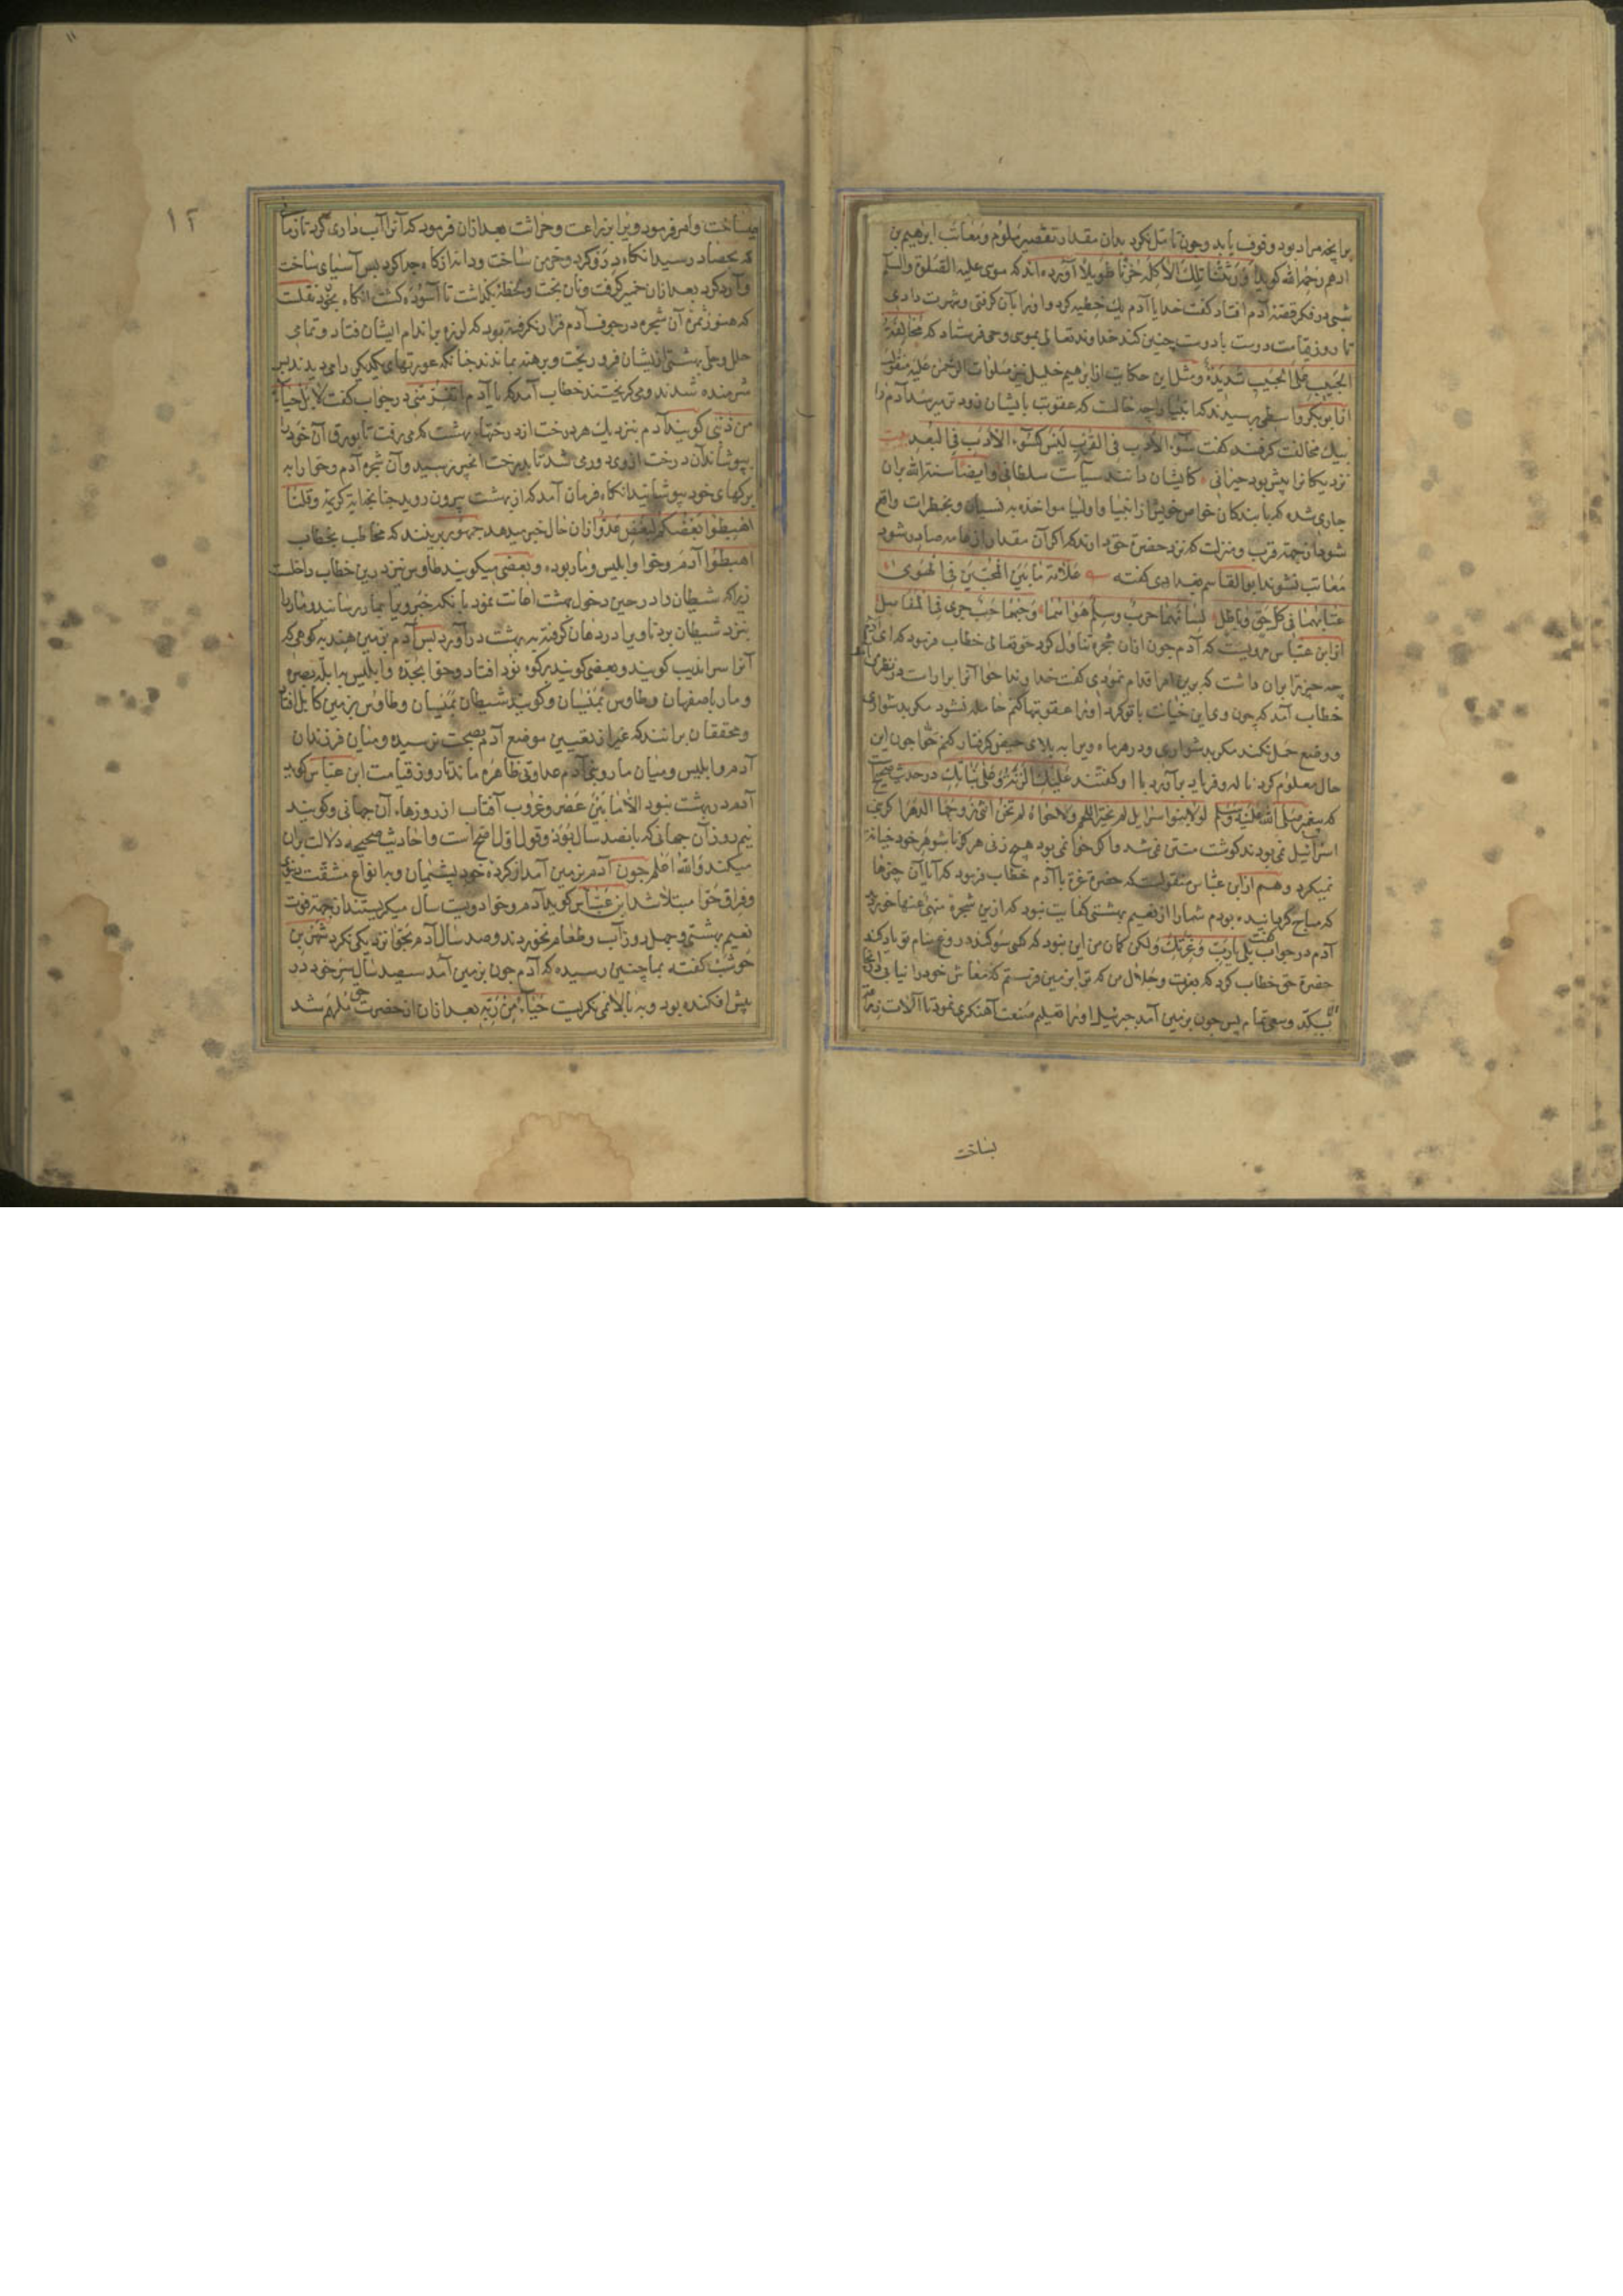 برانچه مراد بود وقوف یابد وچون تامل کرد بدان مقدار تقصیر ملوم ومعاتب ابرهیم بن
ادهم رحمه الله کوید اورثتنا تلک الاکله حزنا طویلا آورده اند که موسی علیه الصلوة والسلم
شبی در فکر قصه آدم افتاد کفت خدایا آدم یک خطیه کرد واورا بآن کرفتی وشهرت دادی
تا روز قیامت دوست با دوست چنین کند خداوند تعالی بموسی وحی فرستاد که مخالفة
الحبیب علی الحبیب شدیدة ومثل این حکایت از ابرهیم خلیل نیز صلوات الرحمن علیه منقول
از ابو بکر واسطی پرسیدند که انبیا را چه حالت که عقوبت بایشان زودتر میرسد آدم را
بیک مخالفت کرفتند کفت سوء الادب فی القرب لیس کسوء الادب فی البعد بیت
نزدیکانرا بیش بود حیرانی کایشان دانند سیآست سلطانی وایضا سنة الله بران
جاری شده که با بندکان خواص خویش از انبیا واولیا مواخذه به نسیان وبخطرات واقع
شود از جهته قرب ومنزلت که نزد حضرة حق دارند که اکر آن مقدار از عامه صادر شود
معاتب نشوند ابوالقاسم بغدادی کفته علامة ما بین المحبین فی الهوی
عتابهما فی کل حق وباطل لسانهما حرب وسلم هواهما وحبهما حب جری فی المفاصل
از ابن عباس مرویست که آدم چون ازان شجره تناول کرد حق تعالی خطاب فرمود که ای آدم
چه چیز ترا بران داشت که برین امر اقدام نمودی کفت خداوندا حوا آنرا بر اراست در نظر من
خطاب آمد که چون وی این خیانت با تو کرد اورا عقوبتها کنم حامله نشود مکر بدشواری
ووضع حمل نکند مکر بدشواری ودر هر ماه ویرا به بلای حیض کرفتار کنم حوا چون این
حال معلوم کرد ناله وفریاد بر آورد با او کفتند علیک الرنة وعلی بناتک در حدیث صحیح
که پیغمبر صلی الله علیه وسلم لولا بنوا اسرایل لم یخنز اللحم ولولا حوا لم تخن انثی زوجها الدهر اکر بنی
اسرائیل نمی بودند کوشت منتن نمی شد واکر حوا نمی بود هیچ زنی هرکز با شوهر خود خیانة
نمیکرد وهم از ابن عباس منقولست که حضرة عزة با آدم خطاب فرمود که آیا آن چیزها
که مباح کردانیده بودم شما را از نعیم بهشتی کفایت نبود که ازین شجرۀ منهی عنها خوردید
آدم در جواب کفت بلی یا رب وعزتک ولکن کمان من این نبود که کسی سوکند دروغ بنام تو یاد کند
حضرة حق خطاب کرد که بعزت وجلال من که ترا بزمین فرستم که معاش خود را نیابی
الا بکد وسعی تمام پس چون بزمین آمد جبرئیل اورا تعلیم صنعت آهنکری نمود تا آلات زراعت
بساخت
۱۱
۱۲
بساخت وامر فرمود ویرا بزراعت وحراثت بعد ازان فرمود که آنرا آب داری کرد تا زمانی
که بحصاد رسید انکاه درو کرد وخرمن ساخت ودانه از کاه جدا کرد پس آسیای ساخت
وآرد کرد بعد ازان خمیر کرفت ونان پخت ولحظۀ بکذاشت تا آسوده کشت انکاه بخورد نقلست
که هنوز ثمرۀ آن شجره در جوف آدم قرار نکرفته بود که لرزه بر اندام ایشان فتاد وتمامی
حلل وحلی بهشتی از ایشان فرو ریخت وبرهنه بماندند چنانکه عورتهای یکدیکر را می دیدند پس
شرمنده شدند ومی کریختند خطاب آمد که یا آدم اتفر منی در جواب کفت لا بل حیاء
من ذنبی کویند آدم بنزدیک هر درخت از درختهای بهشت که می رفت تا بورق آن خود را
بپوشاند آن درخت از وی دور می شد تا بدرخت انجیر رسید وآن شجره آدم وحوا را به
برکهای خود بپوشانید انکاه فرمان آمد که از بهشت بیرون روید چنانچه آیة کریمه وقلنا
اهبطوا بعضکم لبعض عدو ازان حال خبر میدهد جمهور برینند که مخاطب بخطاب
اهبطوا آدم وحوا وابلیس ومار بود وبعضی میکویند طاوس نیز درین خطاب داخلست
زیراکه شیطان را در حین دخول بهشت اعانت نمود بانکه خبر ویرا بمار رسانید ومار را
بنزد شیطان برد تا ویرا در دهان کرفته به بهشت در آورد پس آدم بزمین هند به کوهی که
آنرا سراندیب کویند وبعضی کویند برکوه نود افتاد وحوا بجده وابلیس بابله بصره
ومار باصفهان وطاوس بمیسان وکویند شیطان بمیسان وطاوس بزمین کابل افتاد
ومحققان برانند که غیر از تعیین موضع آدم بصحت نرسیده ومیان فرزندان
آدم وابلیس ومیان مار وبنی آدم عداوتی ظاهره ماند تا روز قیامت ابن عباس کوید
آدم در بهشت نبود الا ما بین عصر وغروب آفتاب از روزهاء آن جهانی وکویند
نیم روز آن جهانی که پانصد سال بود وقول اول اصح است واحادیث صحیحه دلالت بران
میکند والله اعلم چون آدم بزمین آمد از کردۀ خود پشیمان وبه انواع مشقت دنیوی
وفراق حوا مبتلا شد ابن عباس کوید آدم وحوا دویست سال میکریستند از جهته فوت
نعیم بهشتی وچهل روز آب وطعام نخوردند وصد سال آدم بحوا نزدیکی نکرد شهر بن
حوشب کفته بما چنین رسیده که آدم چون بزمین آمد سیصد سال سر خود در
پیش افکنده بود وبه بالا نمی نکریست حیاء من ربه بعد ازان از حضرت حق ملهم شد